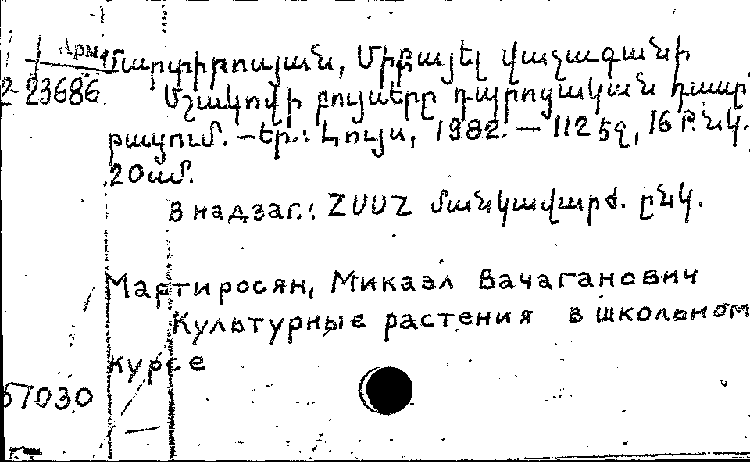 Арм.
2-23686
Մարտիրոսյան, Միքայել Վաչագանի
Մշակովի բույսերը դպրոցական դասըն-
թացում. — Եր.: Լույս, 1982. — 112 էջ, 16 թ. նկ.
20սմ.
В надзаг.: ՀՍՍՀ մանկավարժ. ընկ.
Мартиросян, Микаэл Вачаганович
Культурные растения в школьном
курсе
57030